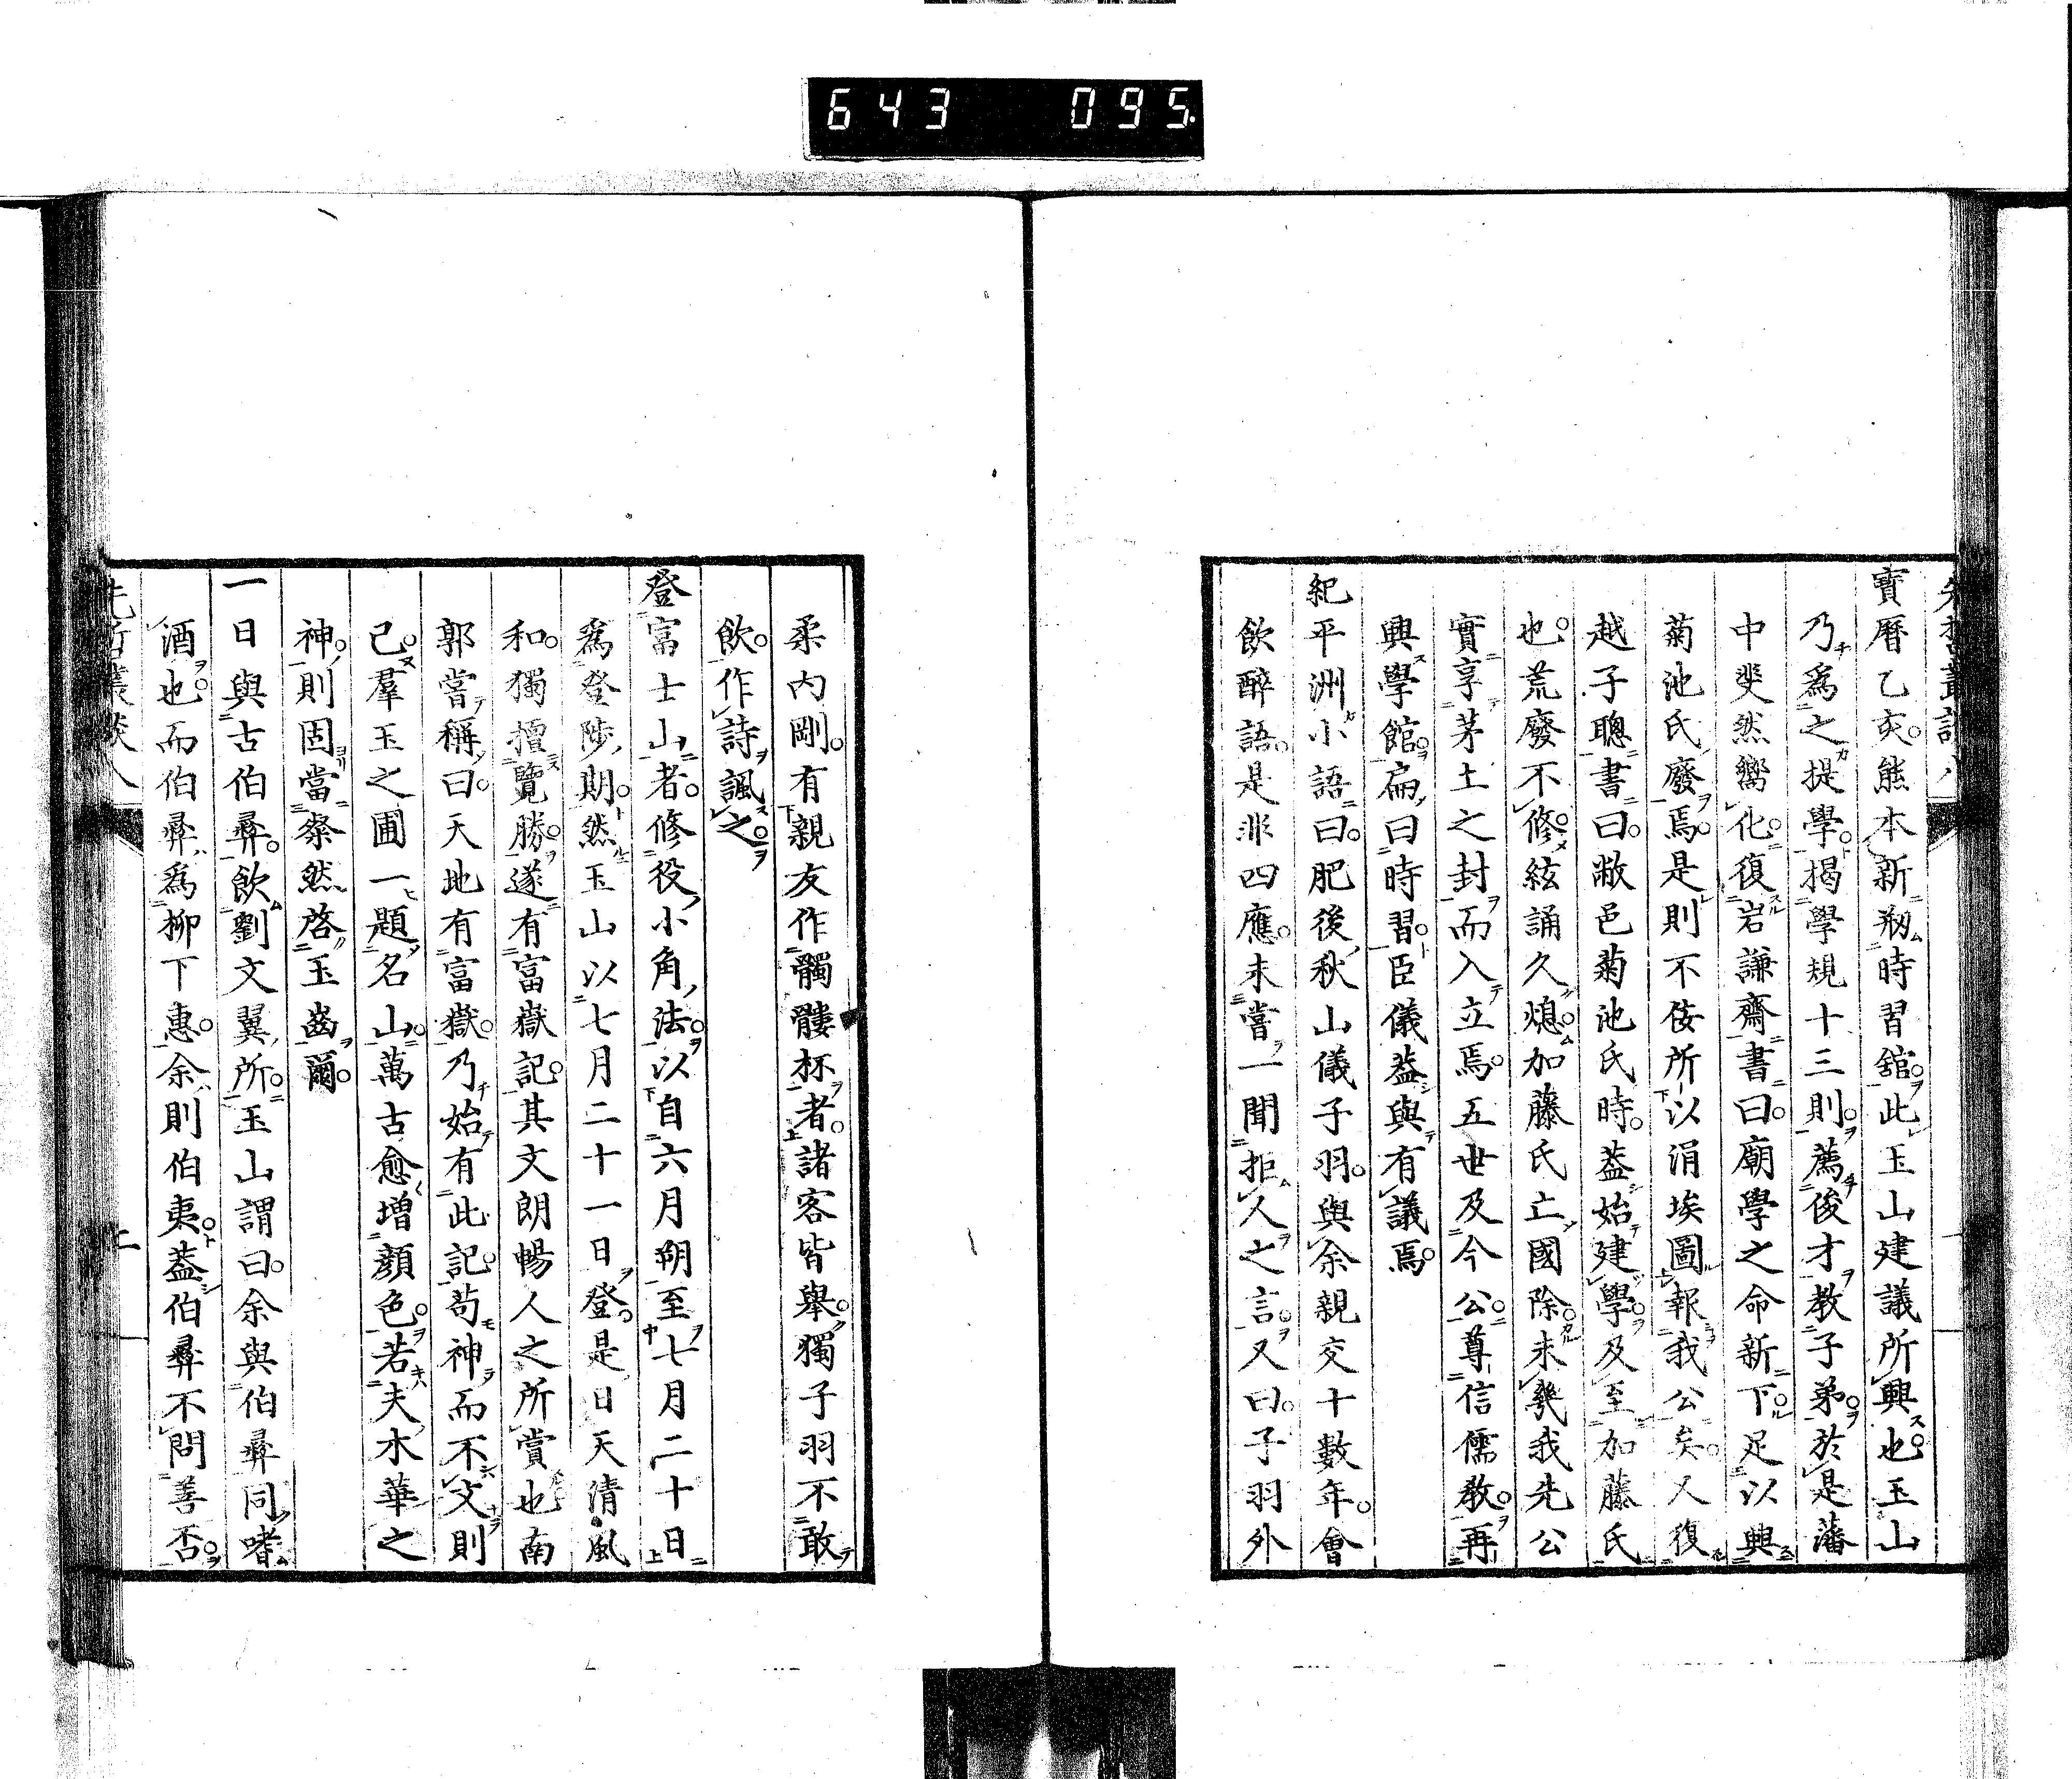 643 095.
寶曆乙亥熊本新剏時習舘此玉山建議所興也玉山
乃爲之提學揭學規十三則薦俊才教子弟於是藩
中斐然嚮化復岩謙齋書曰廟學之命新下足以興
菊池氏廢焉是則不佞所以涓埃圖報我公矣又復
越子聰書曰敝邑菊池氏時葢始建學及至加藤氏
也荒廢不修絃誦久熄加藤氏亡國除未幾我先公
實享茅土之封而入立焉五世及今公尊信儒教再
興學館扁曰時習臣儀葢與有議焉
紀平洲小語曰肥後秋山儀子羽與余親交十數年會
飲醉語是非四應未嘗一聞拒人之言又曰子羽外
柔內剛有親友作髑髏杯者諸客皆舉獨子羽不敢
飲作詩諷之
登富士山者修役小角法以自六月朔至七月二十日
爲登陟期然玉山以七月二十一日登是日天清風
和獨擅覽勝遂有富嶽記其文朗暢人之所賞也南
郭嘗稱曰天地有富嶽乃始有此記苟神而不文則
已羣玉之圃一題名山萬古愈增顏色若夫木華之
神則固當粲然啓玉齒爾
一日與古伯彞飲劉文翼所玉山謂曰余與伯彞同嗜
酒也而伯彞爲柳下惠余則伯夷葢伯彞不問善否
先哲叢談八